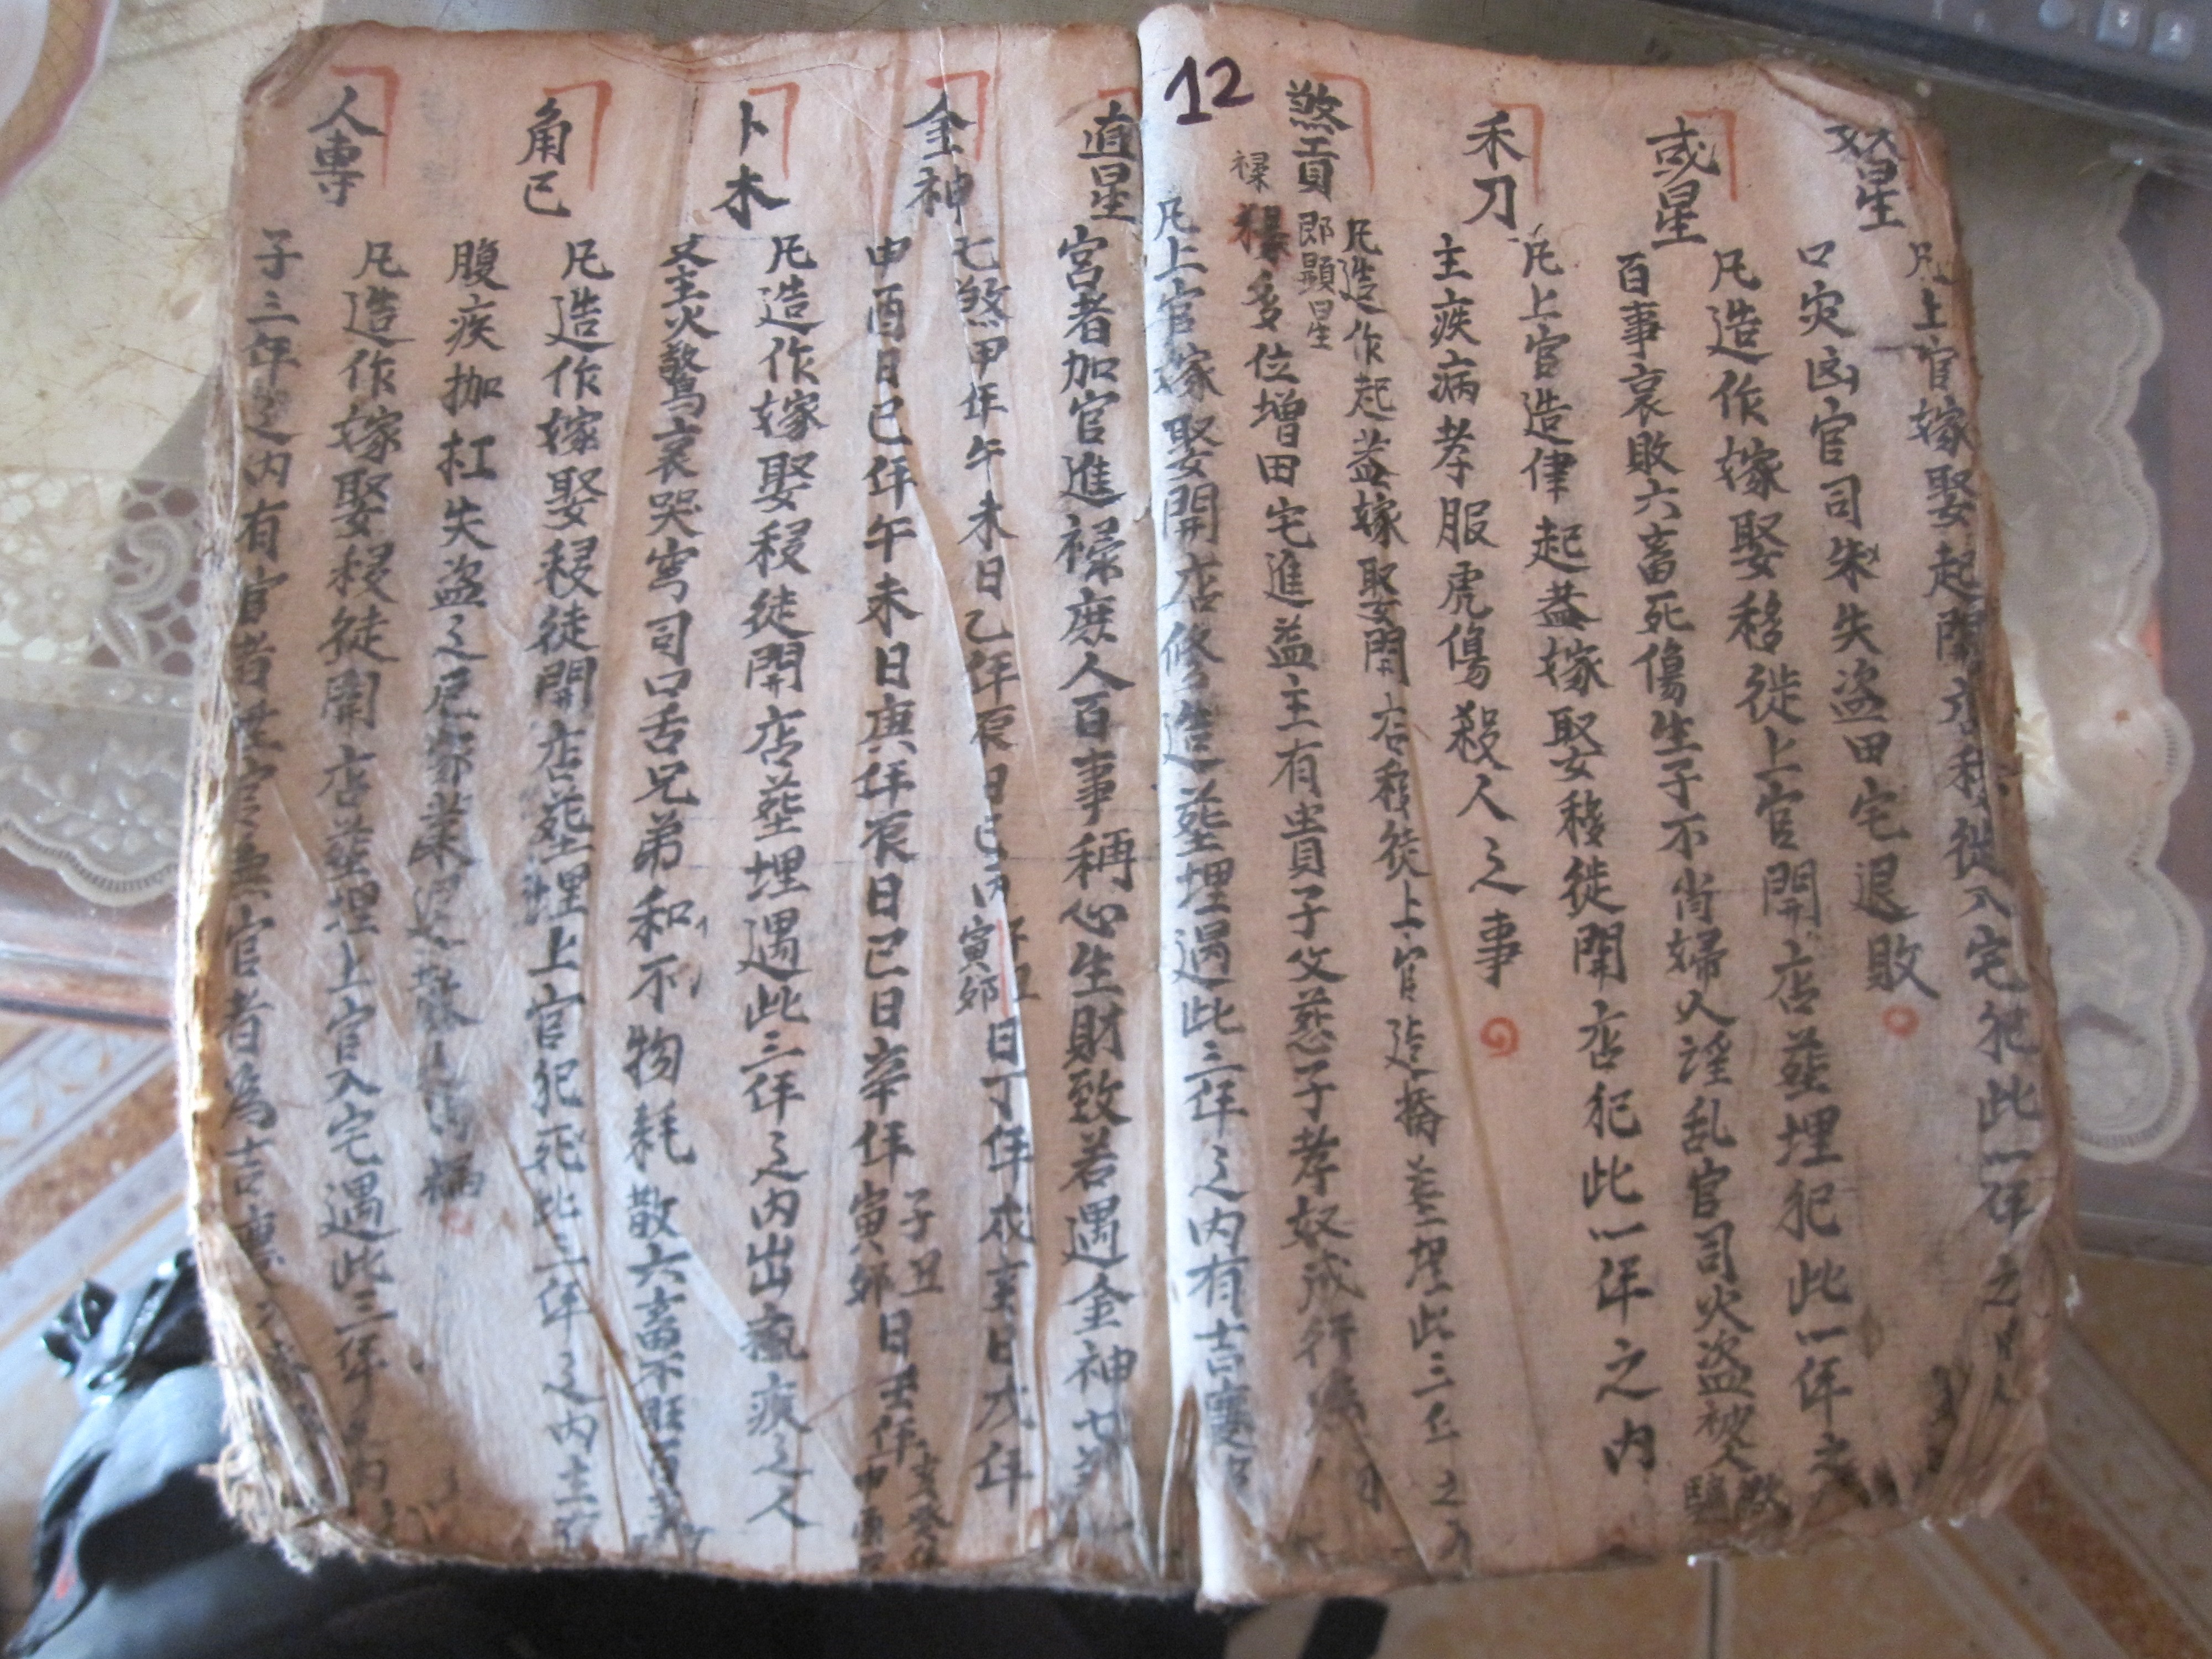 12
妖星
凡上官嫁娶起開店移徙入宅犯此一年之
口灾凶官司朱失盗田宅退敗
或星
凡造作嫁娶移徙上官開店塟埋犯此一年之
百事哀敗六畜死傷生子不肖婦人淫乱官司火盗被
禾刀
凡上官造律起蓋嫁娶移徙開店犯此一年之内
主疾病孝服虎傷殺人之事
煞貢
即顯星
凡造作起蓋嫁娶開店移徙上官造橋塟埋此三年之内
禄
多位增田宅進益主有貴子父慈子孝奴成行
凡上官嫁娶開店修造塟埋遇此三年之内有吉慶
直星
宮者加官進禄庶人百事稱心生財致若遇金神七煞
金神
七煞甲年午未日乙年辰巳日丙年子丑寅卯日丁年戌亥日戊年
申酉日己年午未日庚年辰日巳日辛年子丑寅卯日壬年
卜木
凡造作嫁娶移徒開店塟埋遇此三年之内出瘋疾之人
又主火驚哀哭寃司口舌兄弟和不物耗散六畜不旺
角巳
凡造作嫁娶移徒開店塟埋上官犯死此三年之内主
腹疾枷杠失盗之厄
人専
凡造作嫁娶移徒開店塟埋上官入宅遇此三年之内
子三年之内有官者無官者為吉